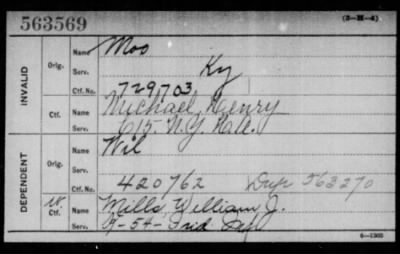 563569 (3-M-4)
Name Moo
INVALID Orig. Serv. Ky
Ctf. No. 729,703
Ctf. Name Michael, Henry
Serv. C 15. N.Y. H.
Name Wil
DEPENDENT Orig. Serv.
Ctf. No. 420762 Dup 563270
W. Ctf. Name Mills, William J.
Serv. 54- Ind.
6-1303